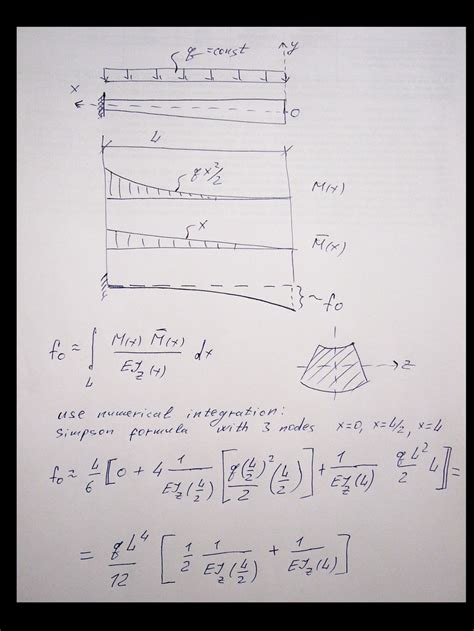 q = const
y
x
0
L
qx²/2
M(x)
x
M̄(x)
f₀
f₀ ≈ ∫_L M(x) M̄(x) / EJ_z(x) dx
z
use numerical integration:
Simpson formula with 3 nodes x=0, x=L/2, x=L
f₀ ≈ L/6 [ 0 + 4 1/EJ_z(L/2) [ q(L/2)²/2 (L/2) ] + 1/EJ_z(L) qL²/2 L ] =
= qL⁴/12 [ 1/2 1/EJ_z(L/2) + 1/EJ_z(L) ]